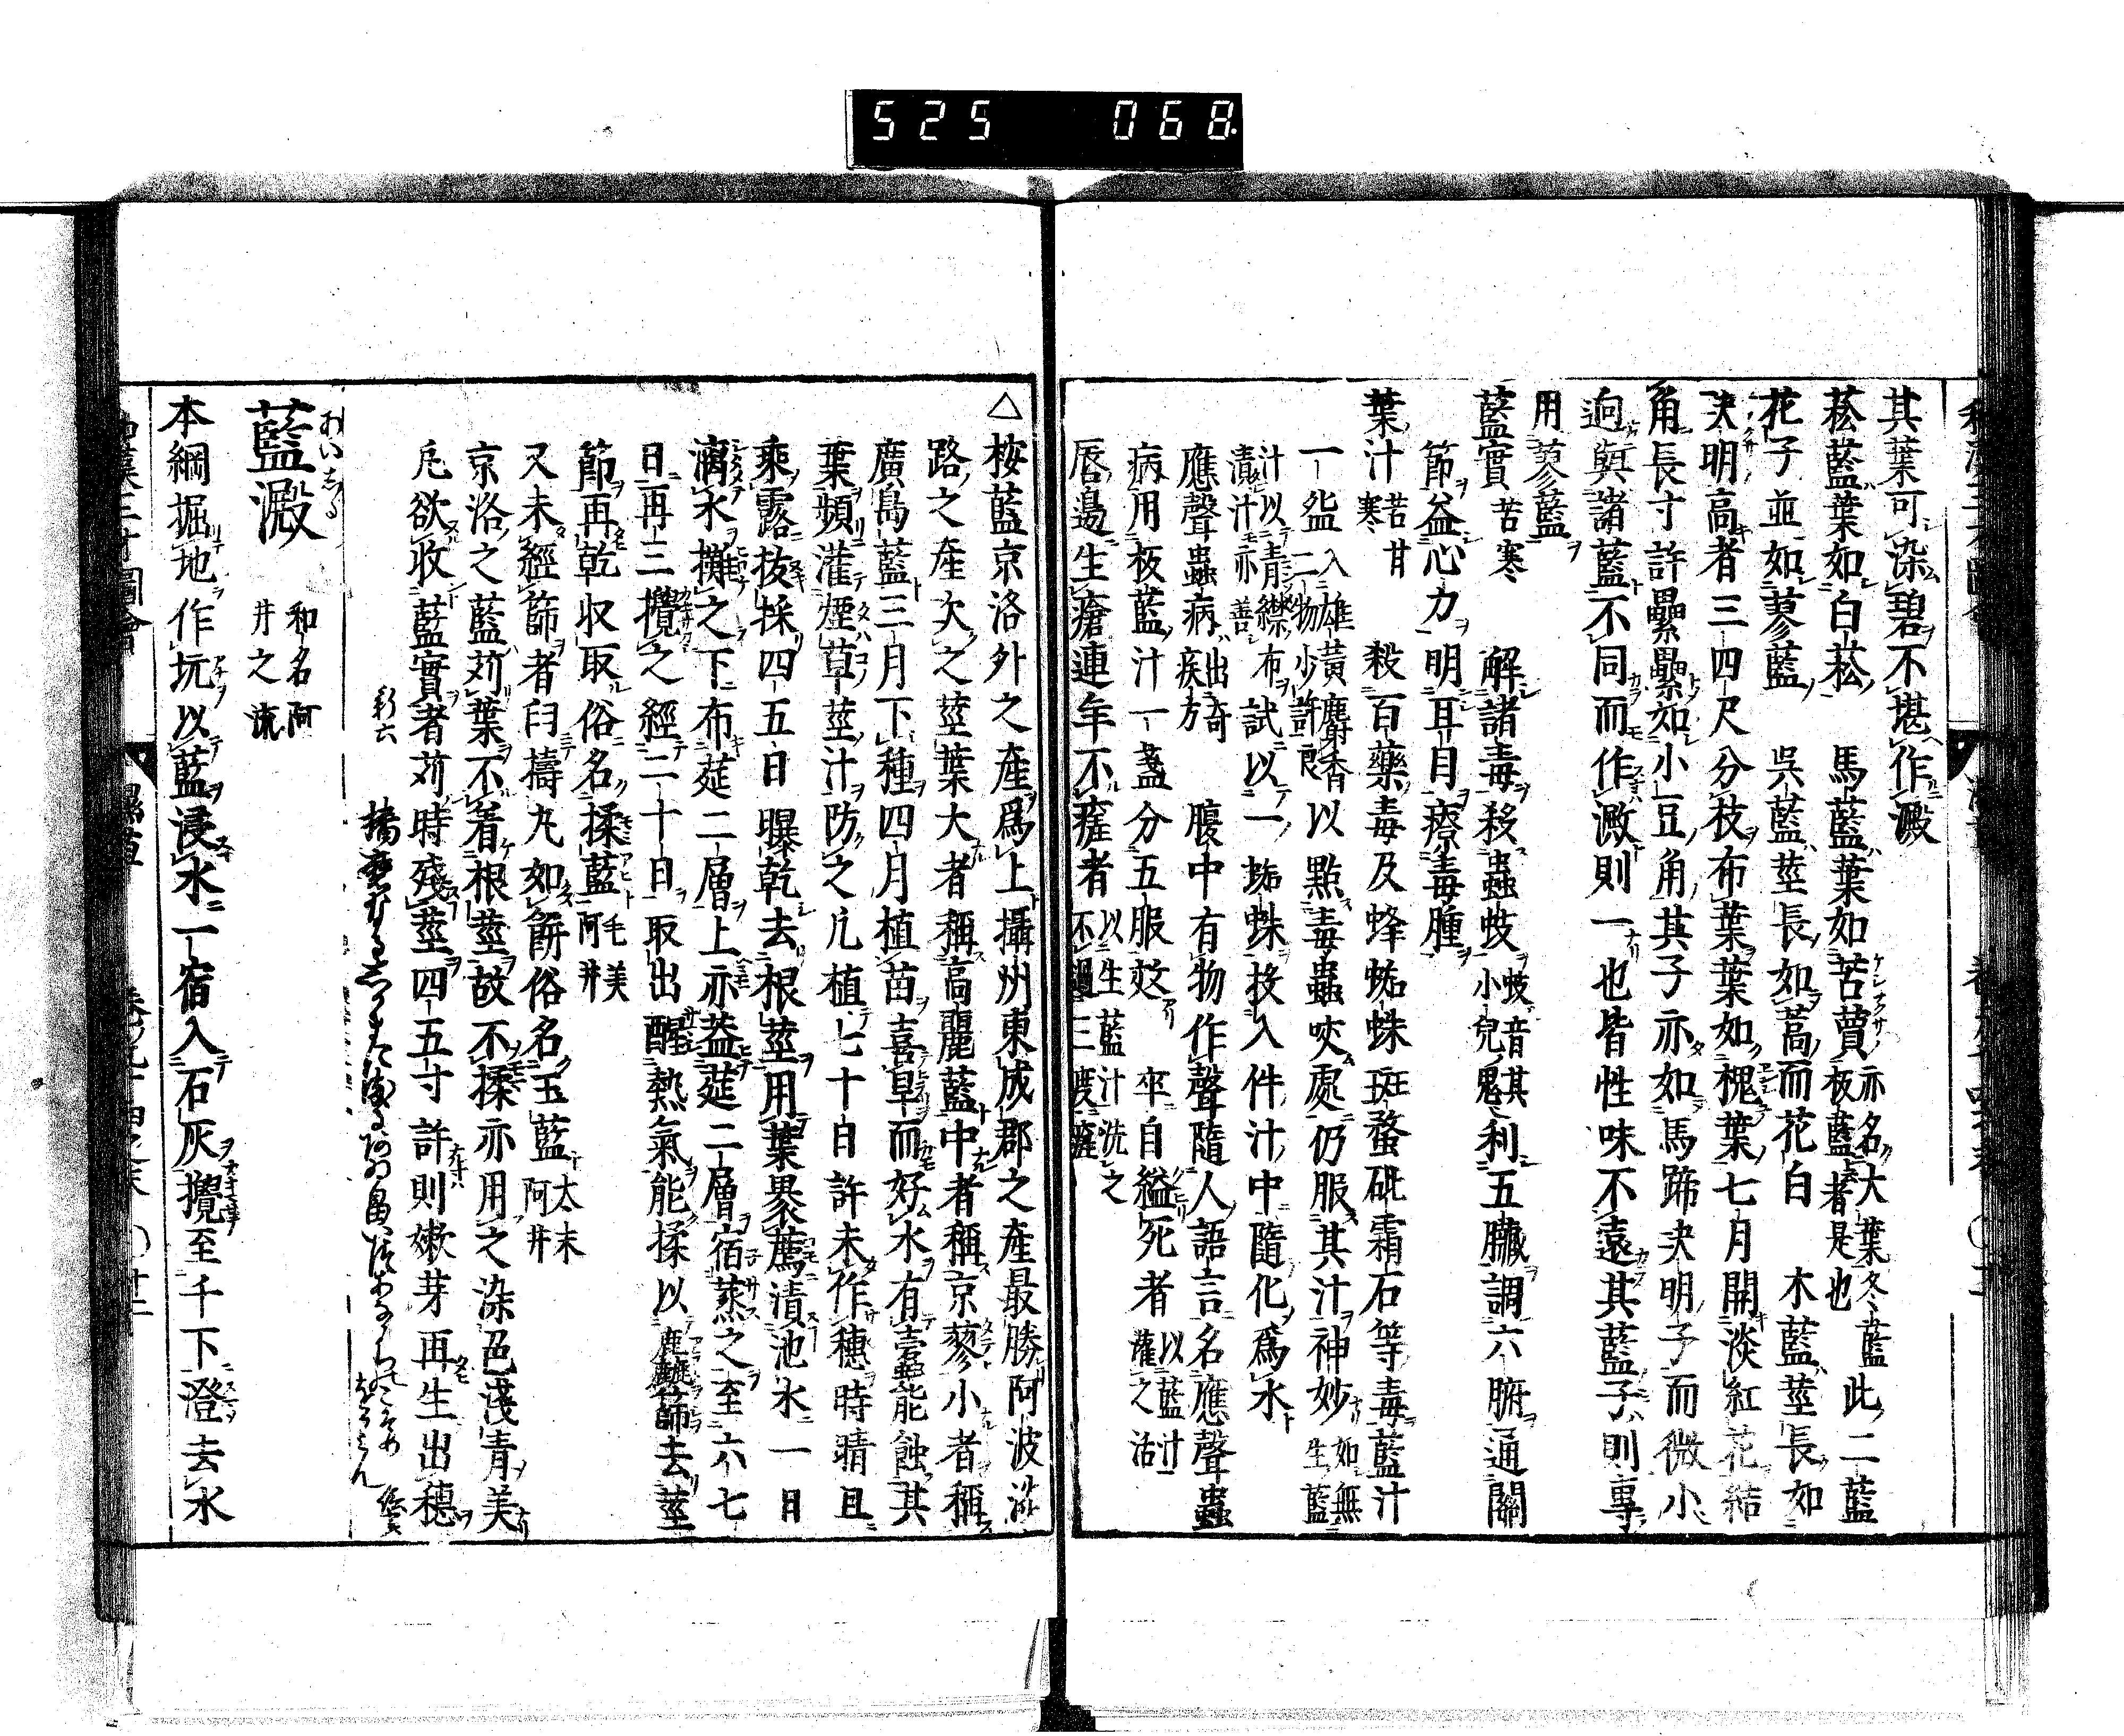 525 068
其葉可染碧不堪作澱
菘藍葉如白菘 馬藍葉如苦蕒 亦名大葉冬藍 板藍者是也 此二藍
花子並如蓼藍 呉藍莖長如蒿而花白 木藍莖長如
决明高者三四尺分枝布葉葉如槐葉七月開淡紅花結
角長寸許纍纍如小豆角其子亦如馬蹄决明子而微小
逈與諸藍不同而作澱則一也皆性味不遠其藍子則專
用蓼藍
藍實 苦寒 解諸毒殺蟲蚑 蚑音其 小兒鬼 利五臓調六腑通關
節益心力明耳目療毒腫
葉汁 苦甘寒 殺百藥毒及蜂蜘蛛斑蝥砒霜石等毒藍汁
一盌 入雄黄麝香 二物少許 以㸃毒蟲咬處仍服其汁神妙 如無生藍
汁以青縹布 漬汁亦善 試以一蜘蛛投入件汁中隨化爲水
應聲蟲病 出奇疾方 腹中有物作聲隨人語言名應聲蟲
病用板藍汁一盞分五服效 卒自縊死者 以藍汁灌之活
唇邉生瘡連年不瘥者 以生藍汁洗之 不過三度瘥
△按藍京洛外之産爲上攝州東成郡之産最勝阿波淡
路之産次之莖葉大者稱高麗藍中者稱京蓼小者稱
廣島藍三月下種四月植苗喜草而好水有蟲能蝕其
葉頻灌煙草莖汁防之凡植七十日許未作穗時晴旦
乘露抜採四五日曝乾去根莖用葉畧薦漬池水一日
漓水攤之下布莚二層上亦葢莚二層宿蒸之至六七
日再三攪之經二十日取出醒熱氣能揉以麁篩去莖
節再乾収取俗名揉藍 毛美阿井
又未經篩者臼擣丸如餅俗名玉藍 太末阿井
京洛之藍苅葉不着根莖故不揉亦用之染色淺青美
凡欲収藍實者苅時殘莖四五寸許則嫩芽再生出穗
藍澱 あいしる 和名阿井之流
本綱掘地作坑以藍浸水一宿入石灰攪至千下澄去水